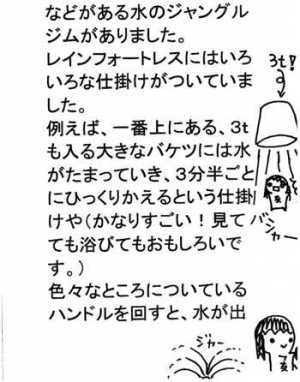 などがある水のジャングル
ジムがありました。
レインフォートレスにはいろ
いろな仕掛けがついていま
した。
例えば、一番上にある、3t
も入る大きなバケツには水
がたまっていき、3分半ごと
にひっくりかえるという仕掛
けや(かなりすごい!見て
ても浴びてもおもしろいで
す。)
色々なところについている
ハンドルを回すと、水が出
3t!
バシャー
ジャー